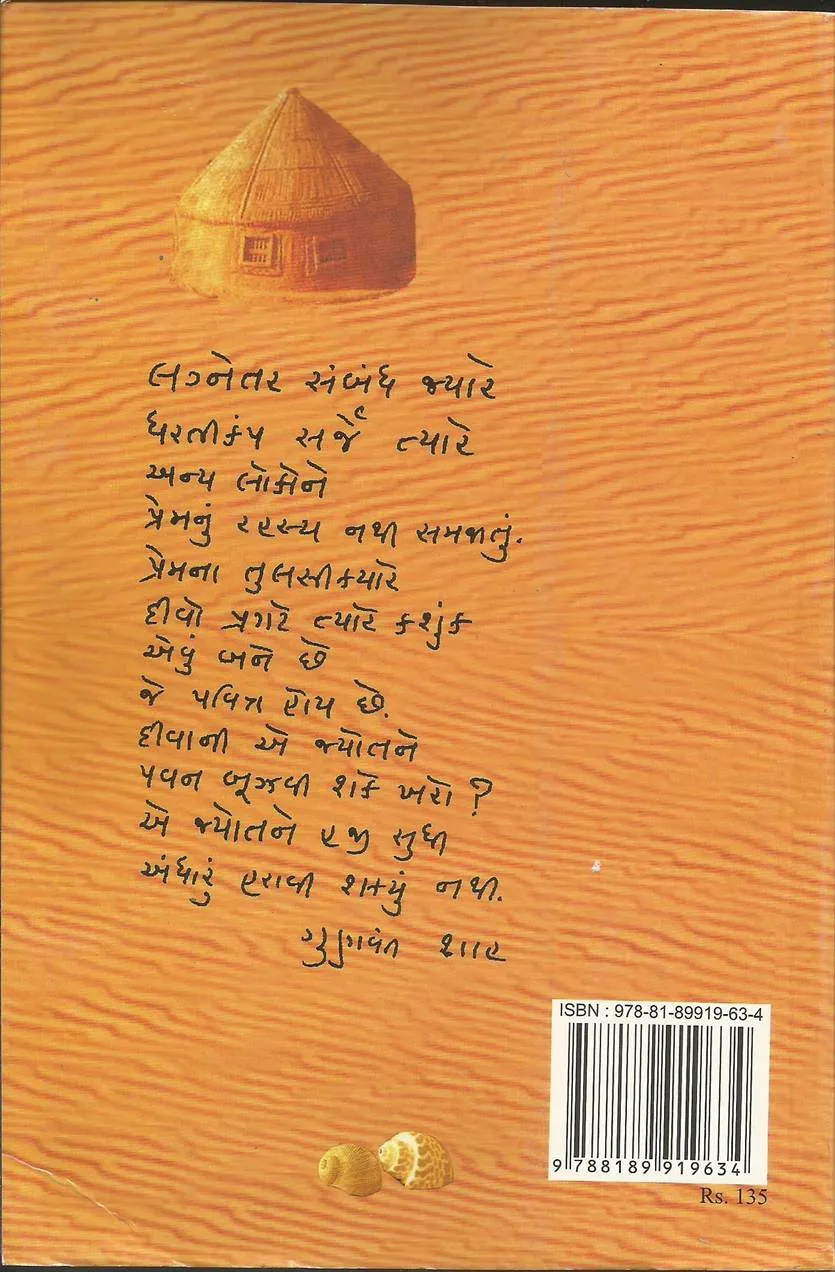 લગ્નેતર સંબંધ જ્યારે
ધરતીકંપ સર્જે ત્યારે
અન્ય લોકોને
પ્રેમનું રહસ્ય નથી સમજાતું.
પ્રેમના તુલસીક્યારે
દીવો પ્રગટે ત્યારે કશુંક
એવું બને છે
જે પવિત્ર હોય છે.
દીવાની એ જ્યોતને
પવન બૂઝવી શકે ખરો ?
એ જ્યોતને હજી સુધી
અંધારું હરાવી શક્યું નથી.
ગુણવંત શાહ
ISBN : 978-81-89919-63-4
9 788189 919634
Rs. 135